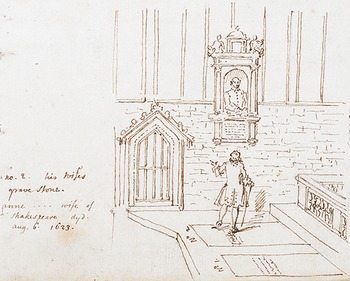 no. 2. his wifes
grave stone.
anne .... wife of
Shakespeare dyd.
aug. 6. 1623.